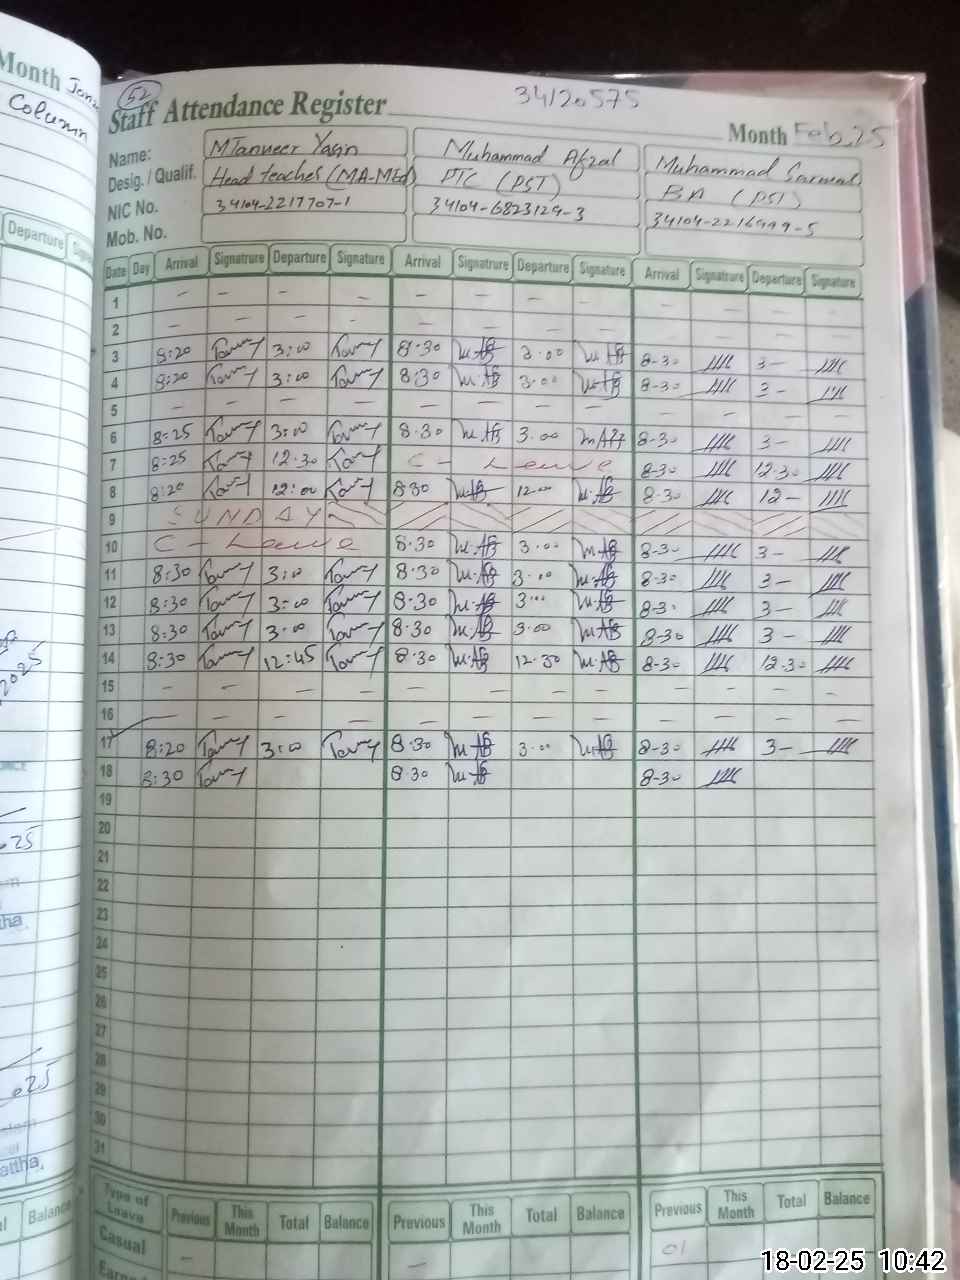 Month
Column
Departure
52
Staff Attendance Register
34120575
Month Feb, 25
Name: MTanveer Yasin Muhammad Afzal Muhammad Sarwar
Desig. / Qualif. Head teacher (MA-MEd) PTC (PST) BA (PST)
NIC No. 34104-2217707-1 34104-6823129-3 34104-2216999-5
Mob. No.
Date Day Arrival Signatrure Departure Signature Arrival Signatrure Departure Signature Arrival Signatrure Departure Signature
1 – – – – – – – – – – – –
2 – – – – – – – – – – – –
3 8:20 3:00 8·30 3·00 8-30 3–
4 8:20 3:00 8:30 3·00 8-30 3–
5 – – – – – – – – – – – –
6 8:25 3:00 8·30 3·00 8-30 3–
7 8:25 12:30 C – Leave 8-30 12-30
8 8:20 12:00 8·30 12·00 8-30 12–
9 SUNDAY
10 C – Leave 8·30 3·00 8-30 3–
11 8:30 3:00 8·30 3·00 8-30 3–
12 8:30 3:00 8·30 3·00 8-30 3–
13 8:30 3:00 8·30 3·00 8-30 3–
14 8:30 12:45 8·30 12·30 8-30 12-30
15 – – – – – – – – – – – –
16 – – – – – – – – – – – –
17 8:20 3:00 8·30 3·00 8-30 3–
18 8:30 8·30 8-30
19
20
21
22
23
24
25
26
27
28
29
30
31
Type of Leave Previous This Month Total Balance Previous This Month Total Balance Previous This Month Total Balance
Casual – – 01
Balance
18-02-25 10:42